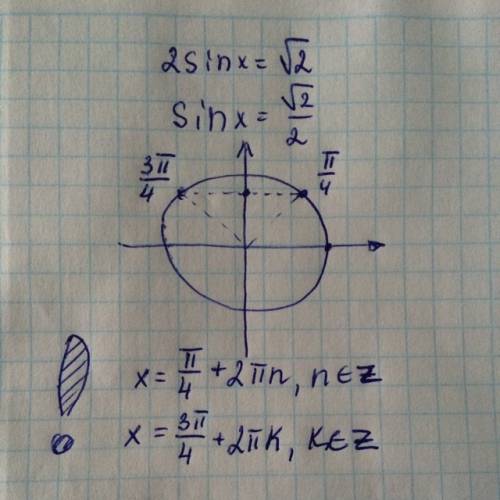 2sinx = √2
sinx = √2/2
3π/4
π/4
x = π/4 + 2πn, n∈Z
x = 3π/4 + 2πk, k∈Z